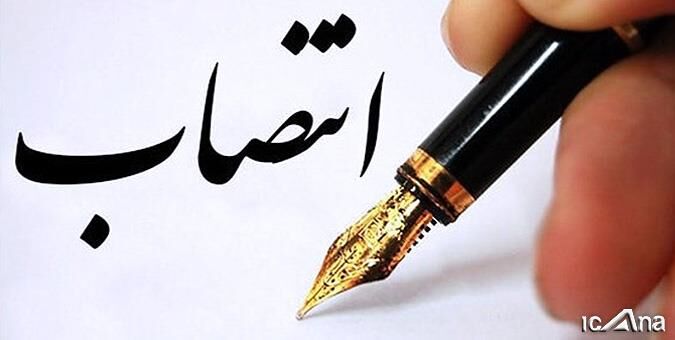 انتصاب
ıcAna